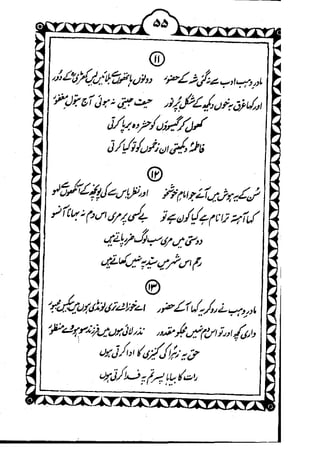 ۵۵
۱۱
مادر وہب ادب سے گئی شہ کے حضور دونوں ہاتھوں سے بلائیں لیں کھڑی ہو کے دور
اور کہا غرق بخوں دیکھ کے شکل پرنور حیف جیتی نہ ہوئی آج بتول مغفور
کھول کر گیسوؤں کو حشر وہ برپا کرتی
فاطمہ دیکھتی ان زخموں کو تو کیا کرتی
۱۲
سن کے یہ ہوش میں آئے جو امام خوشخو اور نظر یاس سے کی پونچھ کے آنکھوں سے لہو
کہا آہستہ ترا نام ہے کیا کون ہے تو بے کسی پر مری اس دم نہ بہانا آنسو
دوستی میں مری سب لوگ ضرر پاتے ہیں
رحم اس شہر میں سید پہ نہیں کھاتے ہیں
۱۳
مادر وہب نے رو کر یہ کہا آکے حضور اے خوزادے تری لونڈی ہوں میں
داری کچھ اور تو اس دم نہیں مجھکو مقدور نذر لائی ہوں میں فرزند سو ہووے منظور
حق یہ زہرا کی کنیزی کا ادا کرتی ہوں
رات کا بیاہا پسر تم پہ فدا کرتی ہوں